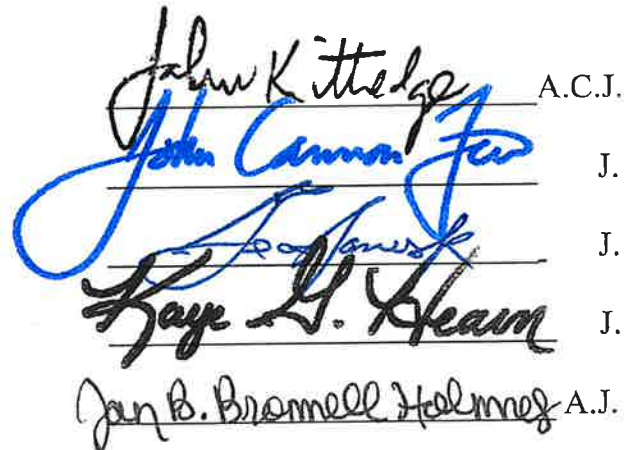 John Kittredge A.C.J.
John Cannon Few J.
J.
Kaye G. Hearn J.
Jan B. Bromell Holmes A.J.